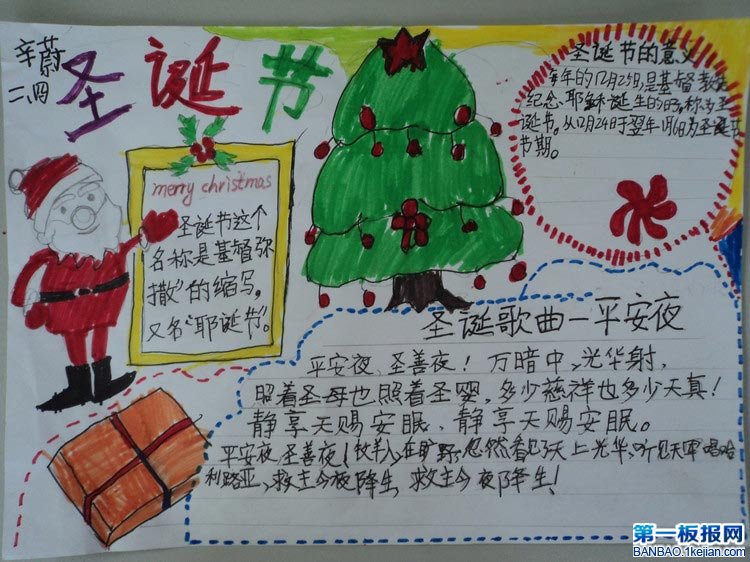 辛蔚
二、四
圣诞节
merry christmas
圣诞节这个
名称是基督弥
撒"的缩写,
又名"耶诞节"。
圣诞节的意义
每年的12月25日,是基督教徒
纪念耶稣诞生的日,称为圣
诞节。从12月24日于翌年1月6日为圣诞节
节期。
圣诞歌曲—平安夜
平安夜、圣善夜!万暗中,光华射,
照着圣母也照着圣婴,多少慈祥也多少天真!
静享天赐安眠、静享天赐安眠。
平安夜,圣善夜!牧羊人,在旷野,忽然看见天上光华,听见天军唱哈
利路亚,救主今夜降生,救主今夜降生!
第一板报网
BANBAO.1kejian.com